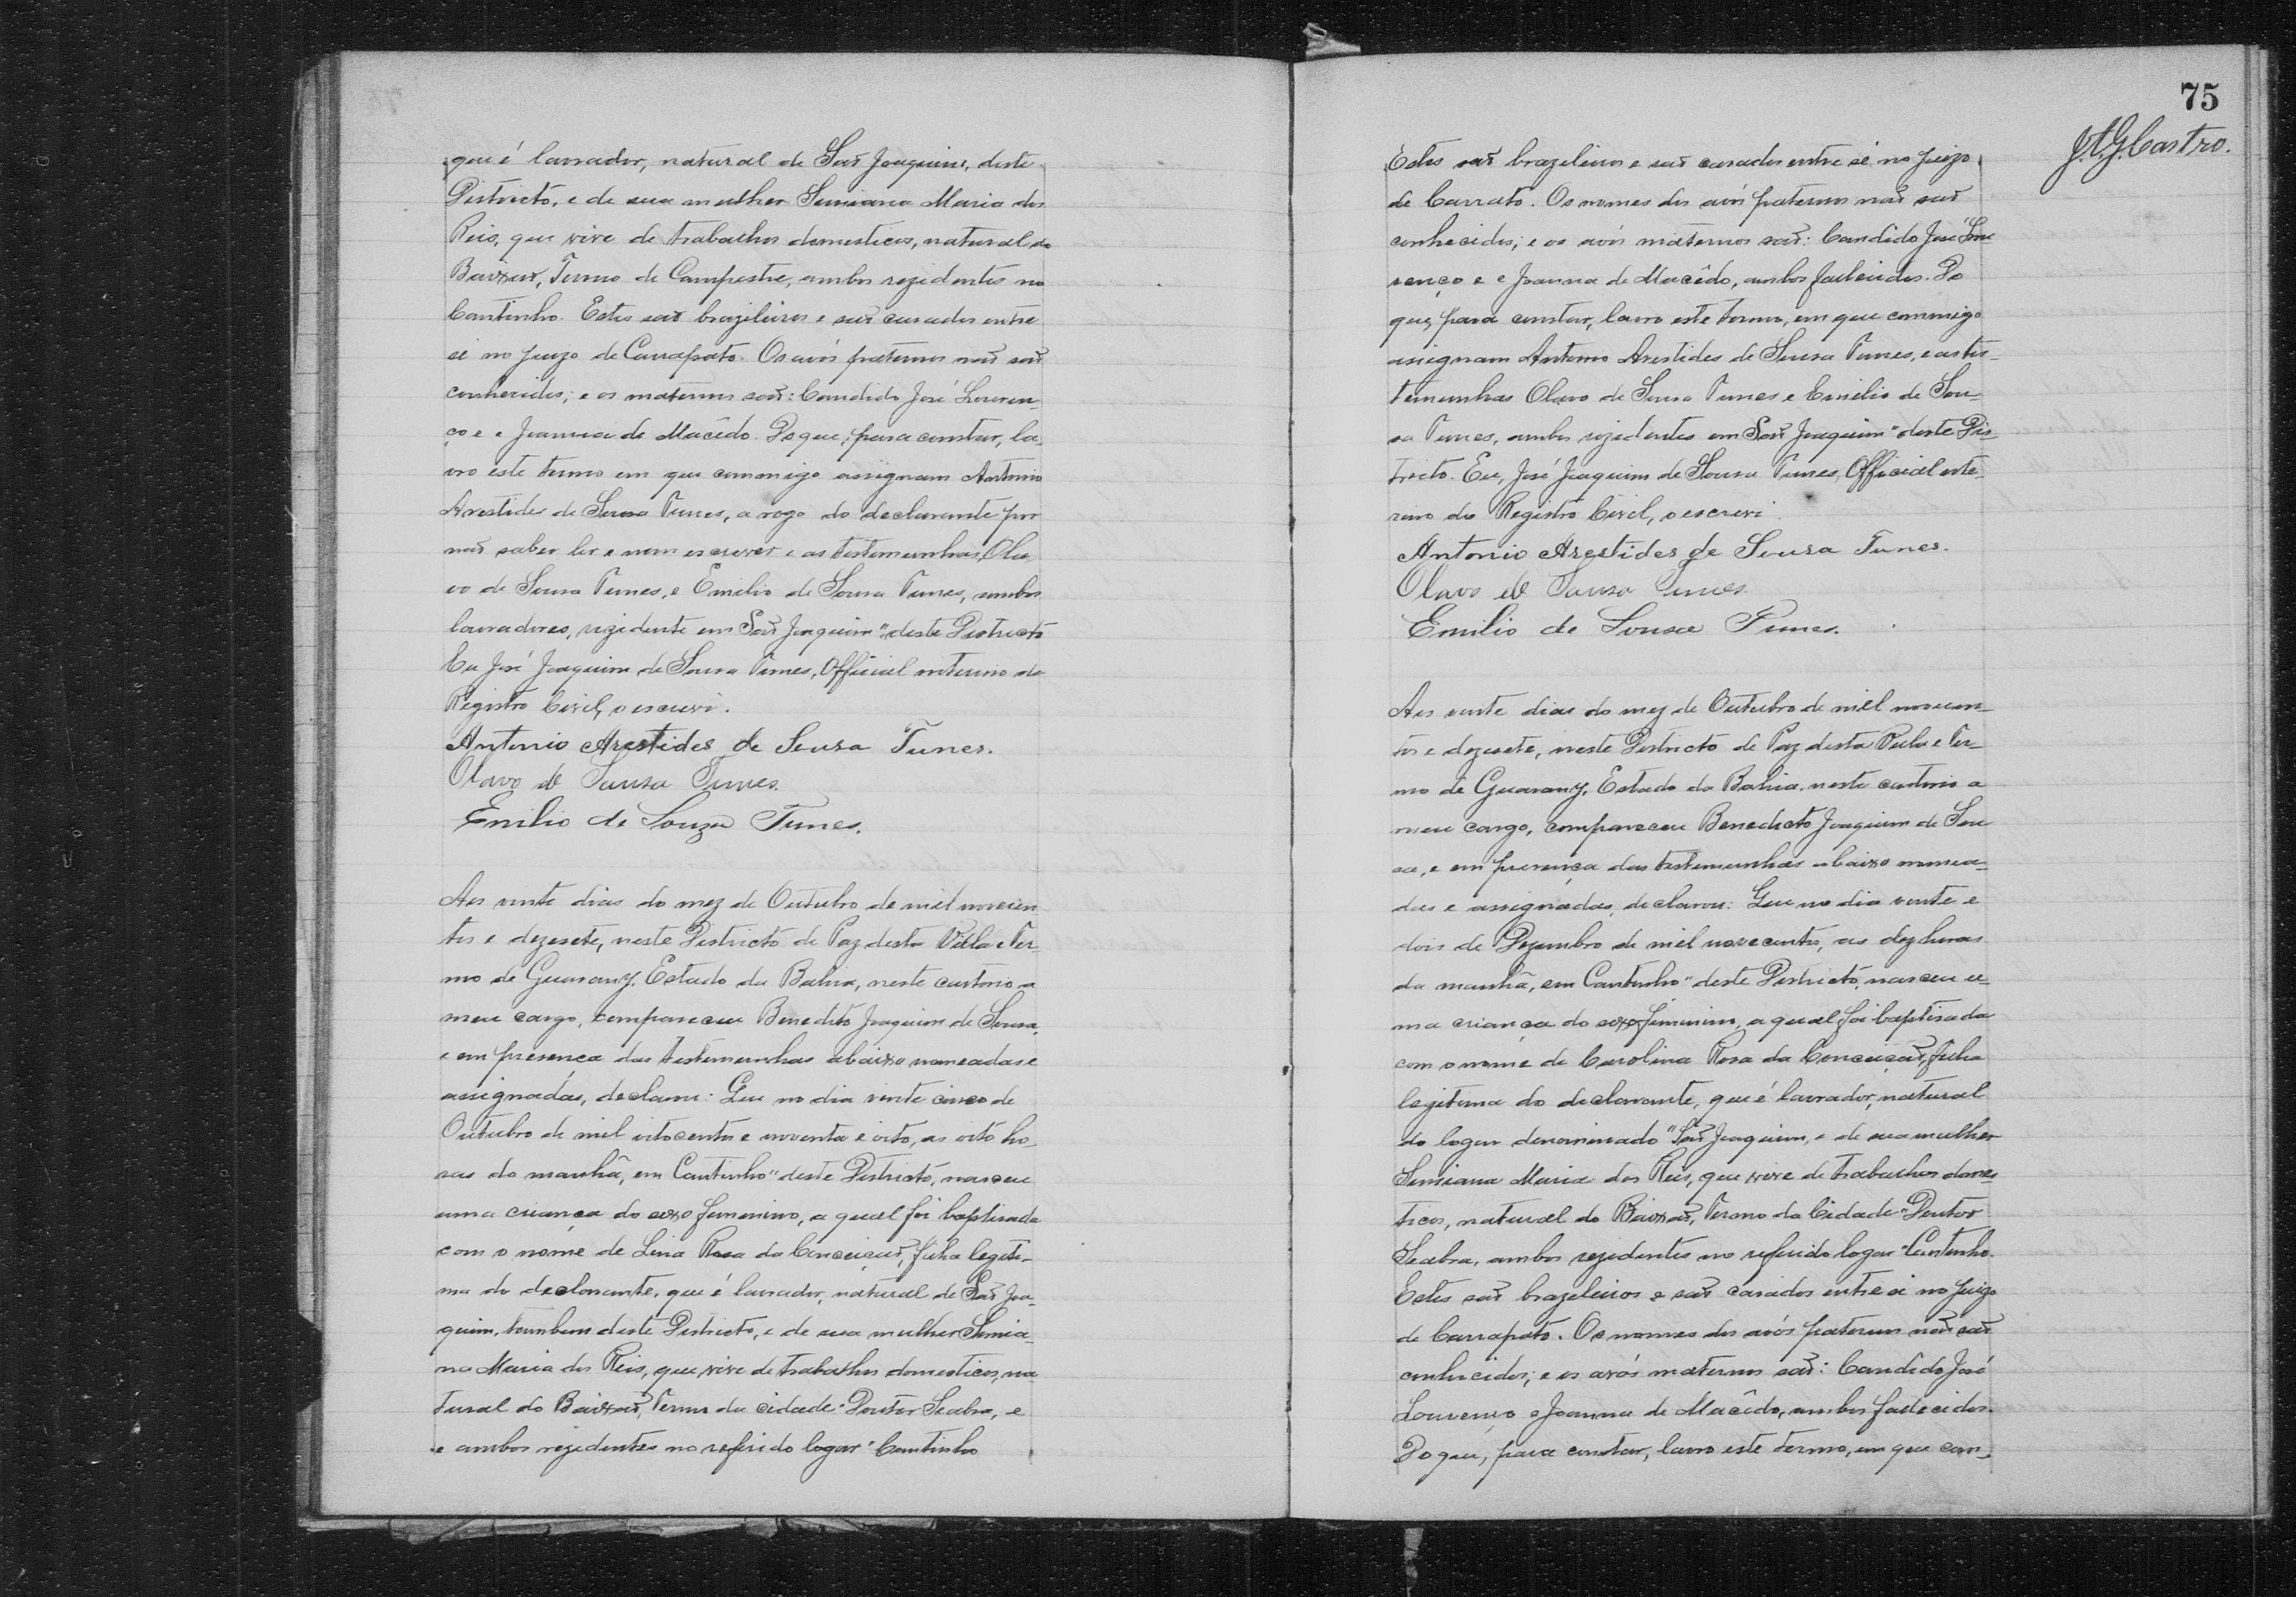 que é lavrador, natural de Saõ Joaquim, deste
Districto, e de sua mulher Simiana Maria dos
Reis, que vive de trabalhos domesticos, natural do
Baixaõ, Termo de Campestre, ambos rezidentes no
Cantinho. Estes saõ brazileiros e saõ casados entre
si no juizo de Carrapato. Os avós paternos naõ saõ
conhecidos; e os maternos saõ: Candido José Louren-
ço e e Joanna de Macêdo. Do que, para constar, la-
vro este termo em que commigo assignam Antonio
Arestides de Sousa Tunes, a rogo do declarante por
naõ saber ler e nem escrever e as testemunhas, Ola-
vo de Sousa Tunes, e Emilio de Sousa Tunes, ambos
lavradores, rezidente em Saõ Joaquim" deste Districto
Eu José Joaquim de Sousa Tunes, Official interino do
Registro Civil, o escrevi.
Antonio Arestides de Sousa Tunes.
Olavo de Sousa Tunes.
Emilio de Souza Tunes.
Aos vinte dias do mez de Outubro de mil novecen
tos e dezesete, neste Districto de Paz desta Villa e Ter-
mo de Guarany, Estado da Bahia, neste cartorio a
meu cargo, compareceu Benedito Joaquim de Sousa,
e em presença das testemunhas abaixo nomeadas e
assignadas, declarou: Que no dia vinte cinco de
Outubro de mil oitocentos e noventa e oito, as oito ho-
ras da manhã, em Cantinho" deste Districto, nasceu
uma criança do sexo feminino, a qual foi baptisada
com o nome de Lina Rosa da Conceiçaõ, filha legiti-
ma do declarante, que é lavrador, natural de Saõ Joa-
quim, tambem deste Districto, e de sua mulher Simia-
na Maria dos Reis, que vive de trabalhos domesticos, na-
tural do Baixaõ, Termo da cidade "Doutor Seabra, e
e ambos rezidentes no referido logar "Cantinho
75
J.A.G.Castro.
Estes saõ brazileiros e saõ casados entre si no juizo
de Carrato. Os nomes dos avós paternos naõ saõ
conhecidos; e os avós maternos saõ: Candido José Lou
renço e e Joanna de Macêdo, ambos falecidos. Do
que, para constar, lavro este termo, em que commigo
assignam Antonio Arestides de Sousa Tunes, e as tes-
temunhas Olavo de Sousa Tunes e Emilio de Sou-
sa Tunes, ambos rezidentes em Saõ Joaquim" deste Dis-
tricto. Eu, José Joaquim de Sousa Tunes, Official inte-
rino do Registro Civil, o escrevi.
Antonio Arestides de Sousa Tunes.
Olavo de Sousa Tunes.
Emilio de Sousa Tunes.
Aos vinte dias do mez de Outubro de mil novecen-
tos e dezesete, neste Districto de Paz desta Villa e Ter-
mo de Guarany, Estado da Bahia, neste cartorio a
meu cargo, compareceu Benedicto Joaquim de Sou
sa, e em presença das testemunhas abaixo nomea-
das e assignadas, declarou: Que no dia vinte e
dois de Dezembro de mil novecentos, as dez horas
da manhã, em Cantinho" deste Districto, nasceu u-
ma criança do sexo feminino, a qual foi baptisada
com o nome de Carolina Rosa da Conceiçaõ, filha
legitima do declarante, que é lavrador, natural
do logar denominado "Saõ Joaquim, e de sua mulher
Simiana Maria dos Reis, que vive de trabalhos domes
ticos, natural do Baixaõ, Termo da Cidade "Doutor
Seabra, ambos rezidentes no referido logar "Cantinho.
Estes saõ brazileiros e saõ casados entre si no juizo
de Carrapato. Os nomes dos avós paternos naõ saõ
conhecidos; e os avós maternos saõ: Candido José
Lourenço e Joanna de Macêdo, ambos falecidos.
Do que, para constar, lavro este termo, em que com-